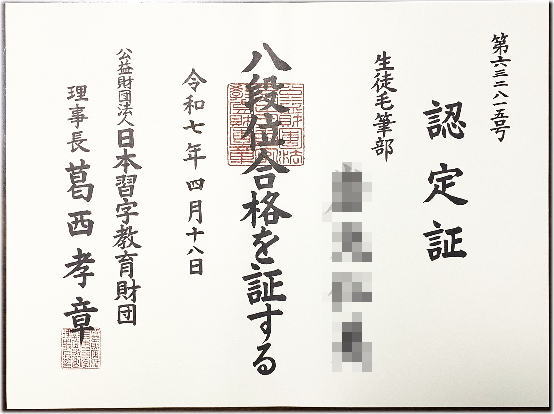 第六三二八一五号
認定証
生徒毛筆部
八段位合格を証する
令和七年四月十八日
公益財団法人日本習字教育財団
理事長 葛西孝章